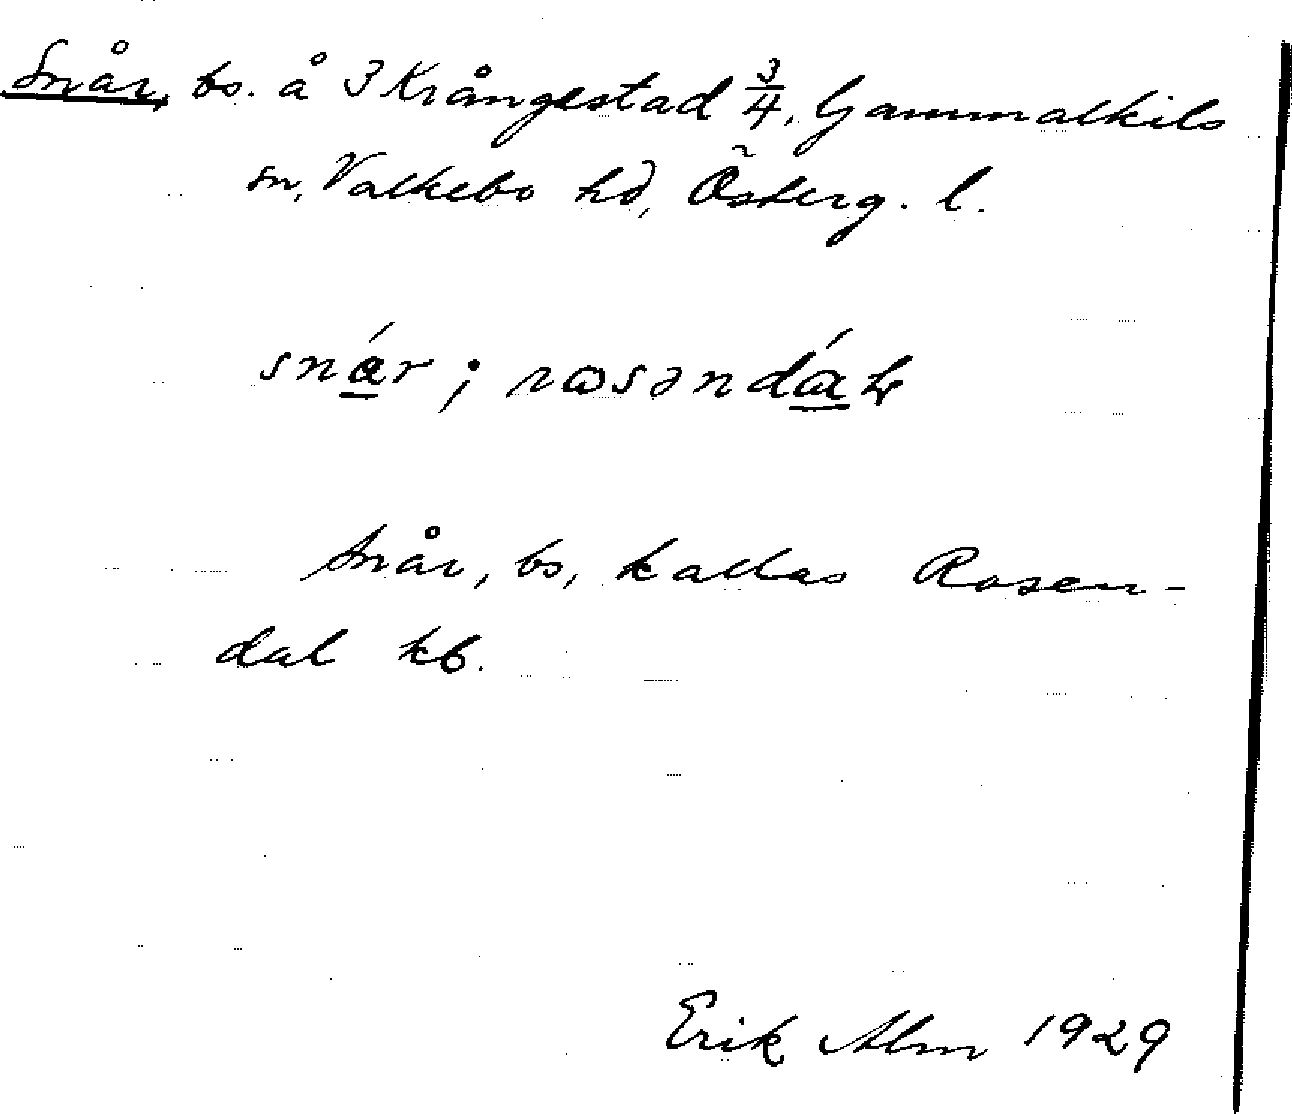 Snår, bs. å 3 Krångestad 3/4, Gammalkils
sn, Valkebo hd, Österg. l.
snár ; rosəndáɫ
Snår, bs, kallas Rosen-
dal kb.
Erik Alm 1929